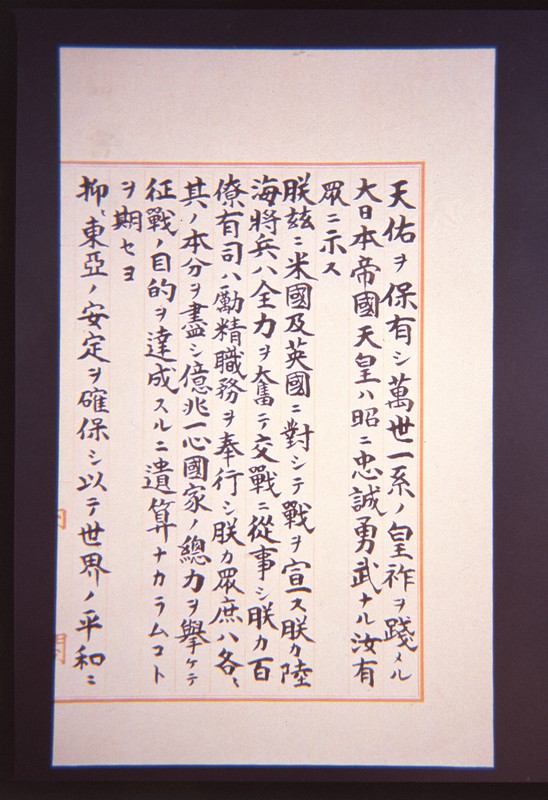 天佑ヲ保有シ萬世一系ノ皇祚ヲ踐メル
大日本帝國天皇ハ昭ニ忠誠勇武ナル汝有
眾ニ示ス
朕玆ニ米國及英國ニ對シテ戰ヲ宣ス朕カ陸
海將兵ハ全力ヲ奮テ交戰ニ從事シ朕カ百
僚有司ハ勵精職務ヲ奉行シ朕カ眾庶ハ各〻
其ノ本分ヲ盡シ億兆一心國家ノ總力ヲ擧ケテ
征戰ノ目的ヲ達成スルニ遺算ナカラムコト
ヲ期セヨ
抑〻東亞ノ安定ヲ確保シ以テ世界ノ平和ニ
內
閣